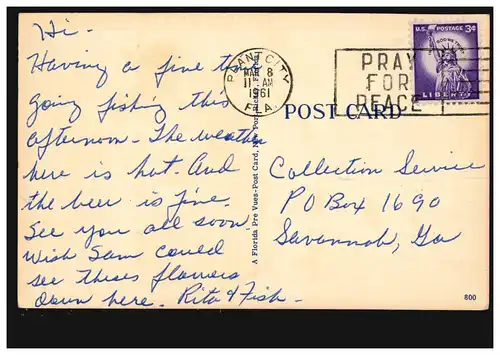 Hi-
Having a fine time
going fishing this
afternoon. The weather
here is hot. And
the beer is fine.
See you all soon.
Wish Sam could
see theses flowers
down here. Rita & Fish.
A Florida Pre Vues-Post Card,
PLANT CITY
MAR 8
11 AM
1961
FLA.
PRAY
FOR
PEACE
U.S. POSTAGE 3¢
IN GOD WE TRUST
LIBERTY
POST CARD
Collection Service
PO Box 1690
Savannah, Ga
800